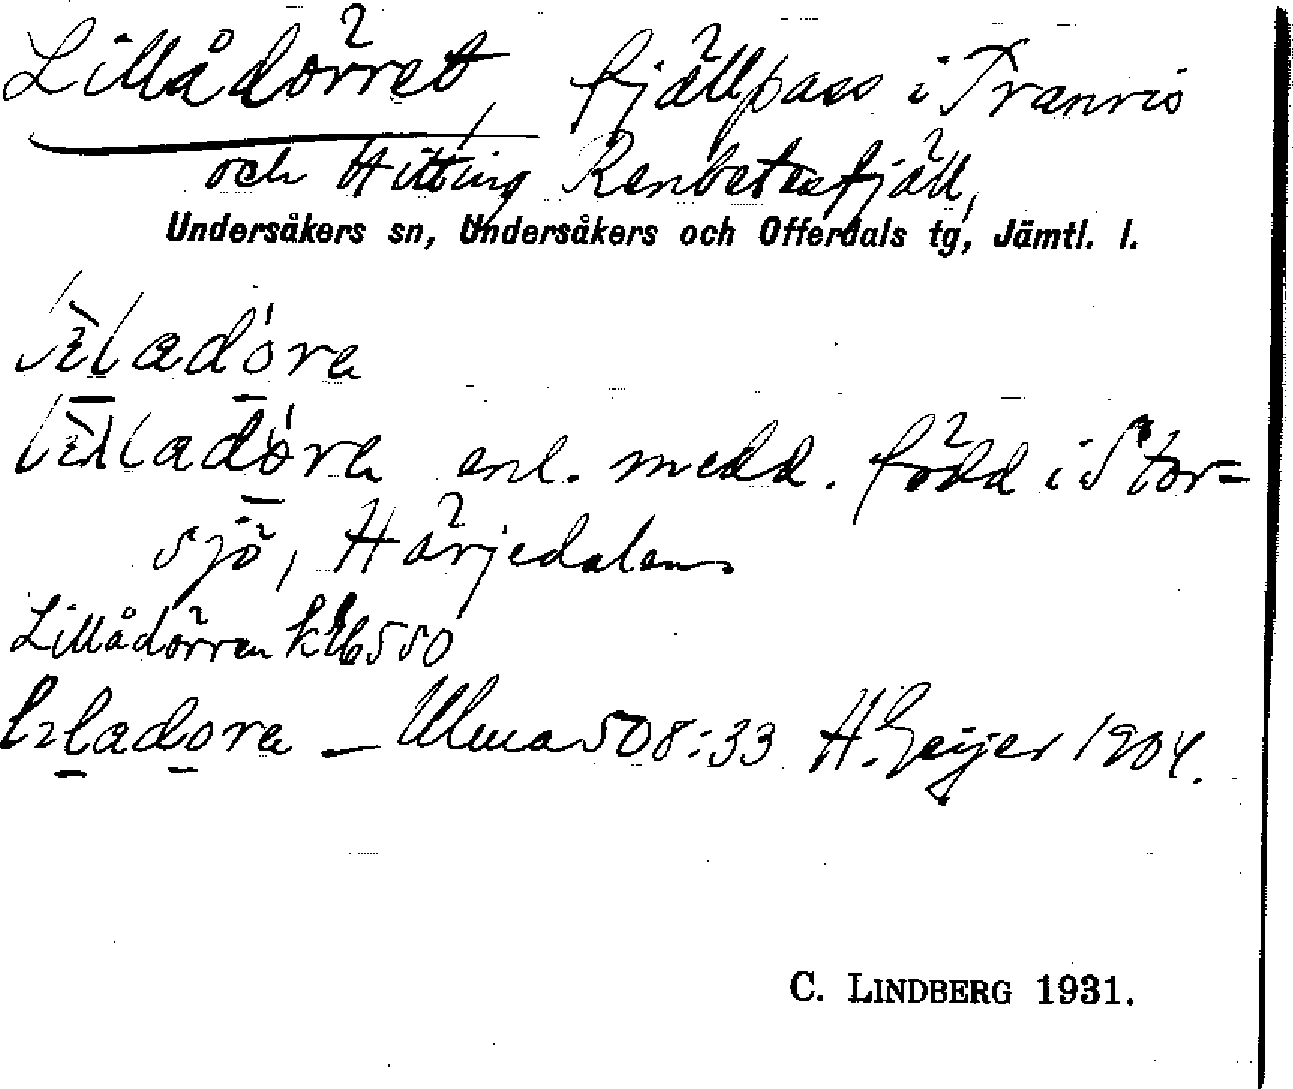 Lillådörret, fjällpass i Tranris
och Hitting Renbetesfjäll,
Undersåkers sn, Undersåkers och Offerdals tg, Jämtl. l.
enl. medd. född i Stor=
sjö, Härjedalen
Lillådörren 6550
– Ulma 508:33 H. Geijer 1904.
C. LINDBERG 1931.